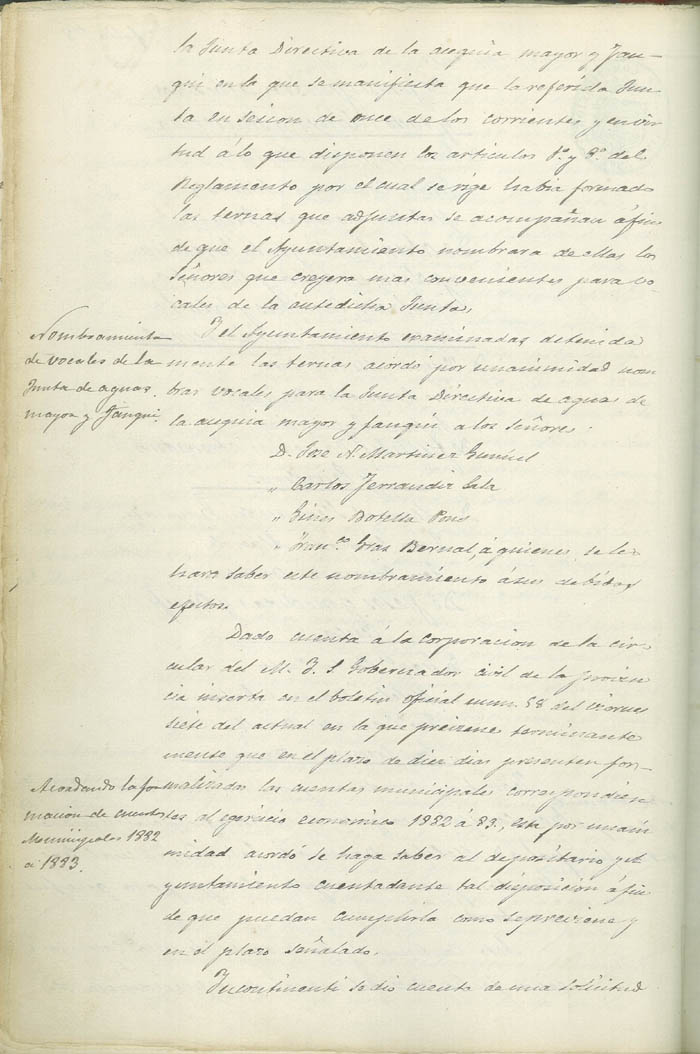 la Junta Directiva de la acequia mayor y Fau-
quin en la que se manifiesta que la referida Jun-
ta en secion de once de los corrientes y en vir-
tud á lo que disponen los articulos y del
Reglamento por el cual se rige habia formado
las ternas que adjuntas se acompañan áfin
de que el Ayuntamiento nombrara de ellas los
Señores que creyera mas convenientes para vo-
cales de la antedicha Junta.
Nombramiento
de vocales de la
Junta de aguas
mayor y Fauqui.
Y el Ayuntamiento examinadas detenida
mente las ternas acordó por unanimidad nom
brar vocales para la Junta Directiva de aguas de
la acequia mayor y fauquin a los Señores
D. Jose A. Martinez
„ Carlos Ferrandiz Sala
„ Gines Botella Pons
„ Fran.co Gras Bernal, á quienes se les
hara saber este nombramiento á sus debidos
efectos.
Dado cuenta á la corporacion de la cir-
cular del M. Y. S. Gobernador civil de la provin
cia inserta en el boletin oficial num. 58 del viernes
siete del actual en la que previene terminante
mente que en el plazo de diez dias presenten for-
Acordando la for
macion de cuentas
Municipales 1882
a 1883.
malizadas las cuentas municipales correspondien
tes al egercicio economico 1882 á 83, esta por unani
midad acordó se haga saber al depositario y
yuntamiento cuentadante tal disposición áfin
de que puedan cumplirla como se previene y
en el plazo señalado.
Incontinenti se dio cuenta de una solicitud